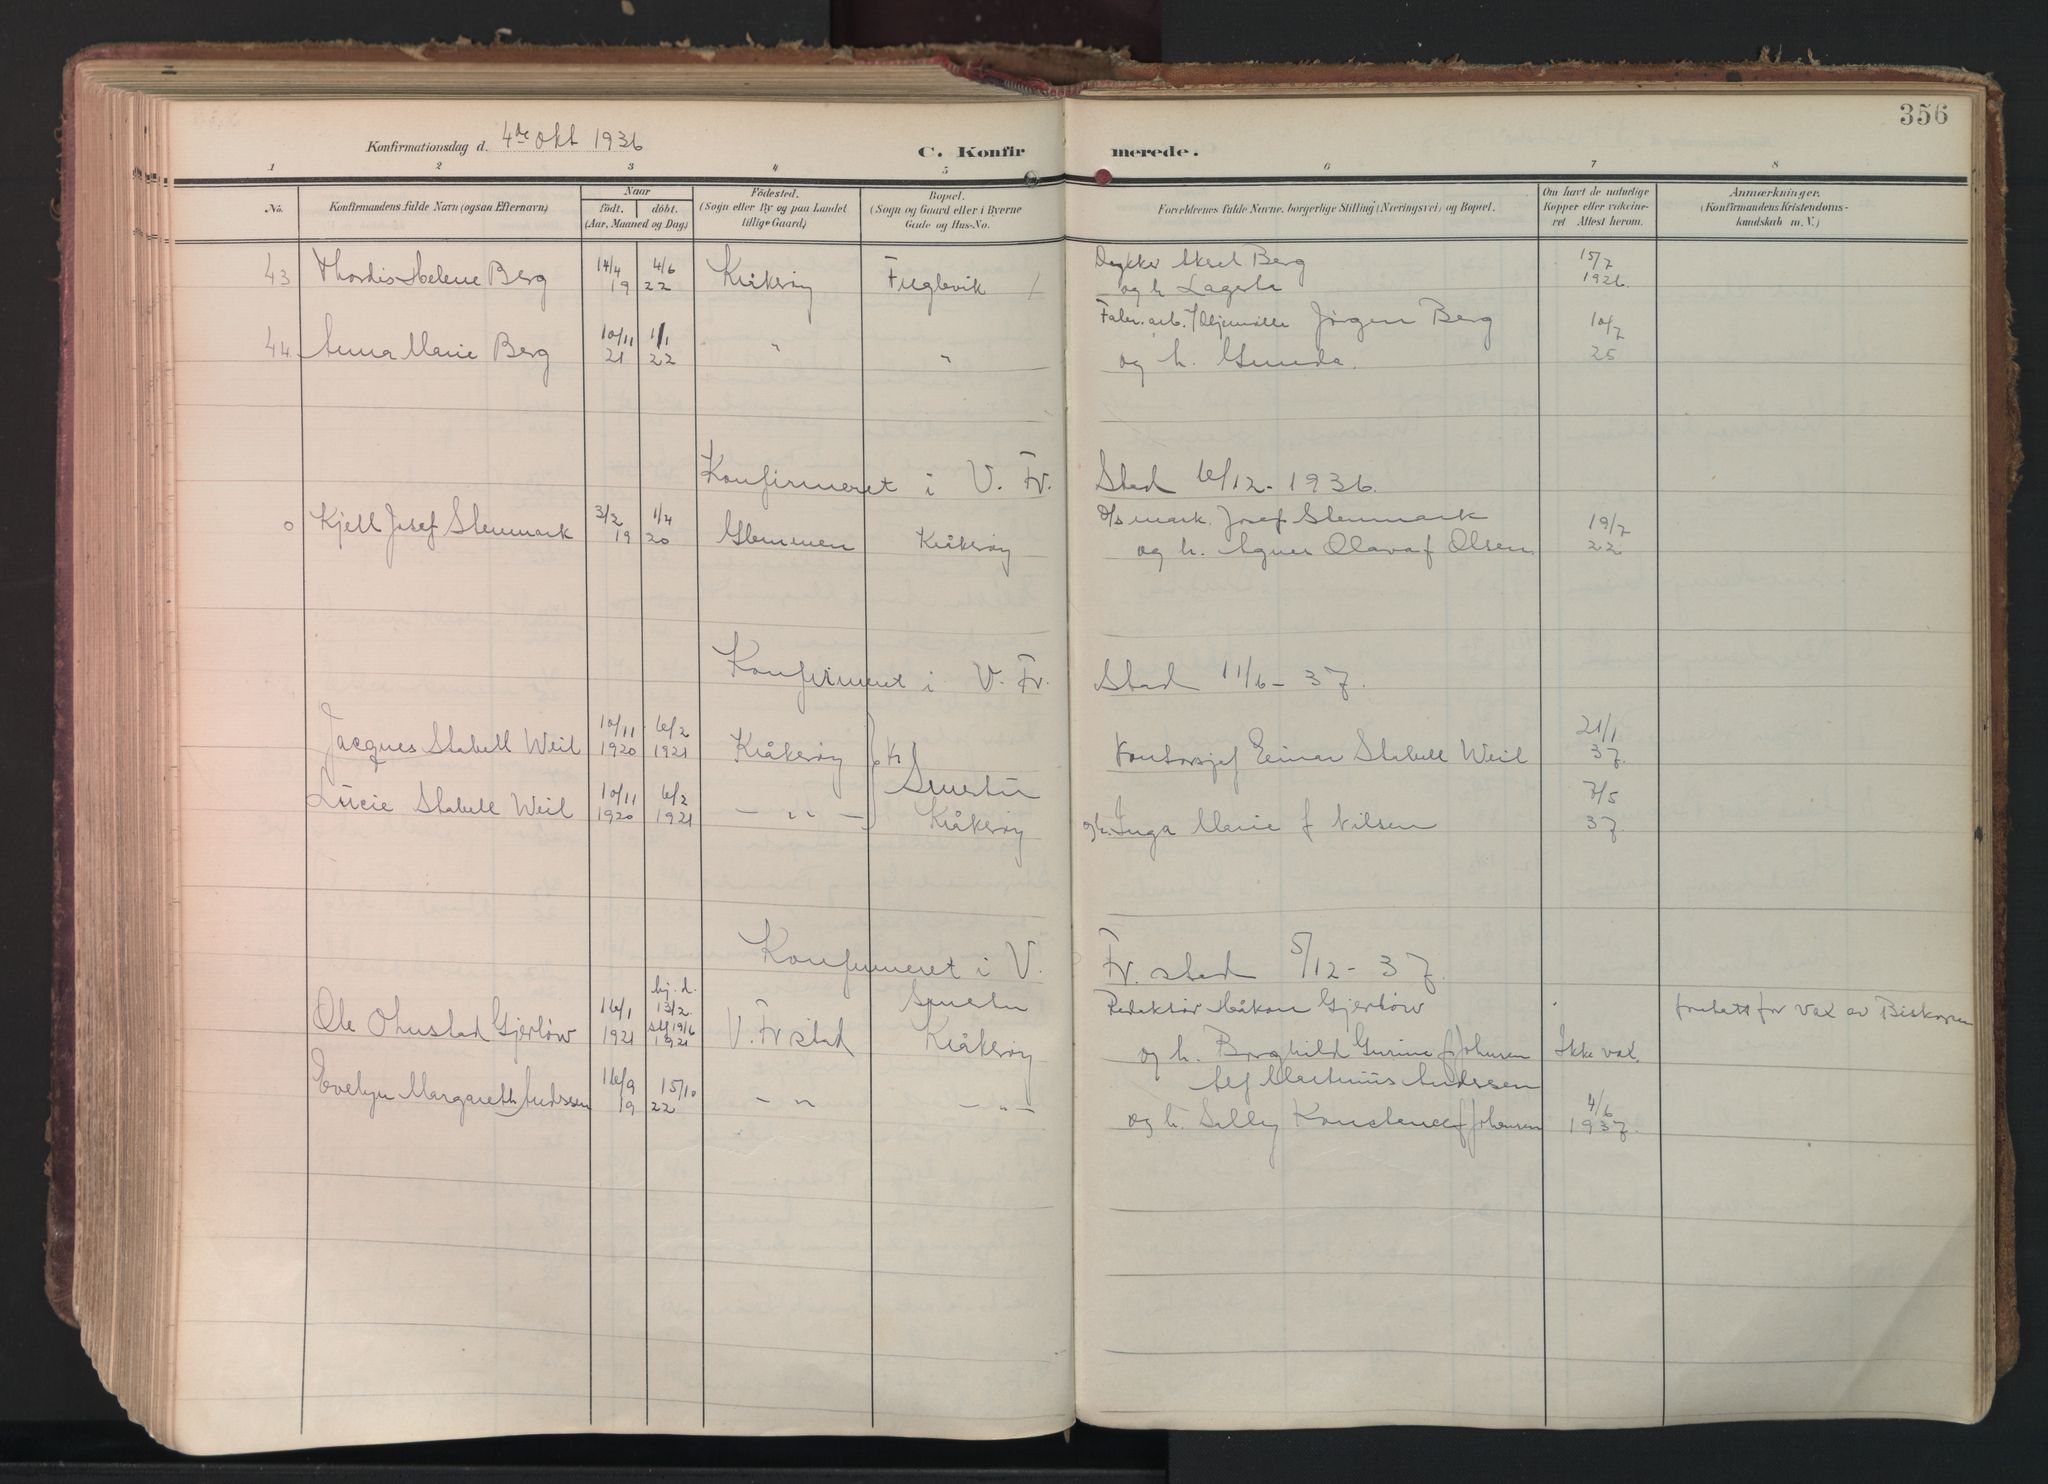 356
Konfirmationsdag d. 4de okt 1936
C. Konfirmerede.
1 2 3 4 5 6 7 8
No. Konfirmandens fulde Navn (ogsaa Efternavn) Naar födt. döbt. (Aar, Maaned og Dag) Födested. (Sogn eller By og paa Landet tillige Gaard) Bopæl. (Sogn og Gaard eller i Byerne Gade og Hus-No. Forældrenes fulde Navne, borgerlige Stilling (Næringsvei) og Bopæl. Om havt de naturlige Kopper eller vakcineret Attest herom. Anmærkninger. (Konfirmandens Kristendomskundskab m. V.)
43 Thordis Helene Berg 14/4 19 4/6 22 Kråkerøy Fuglevik Dykker Aksel Berg 15/7 1926.
og h. Lagerta
44. Anna Marie Berg 10/11 21 1/1 22 " " Fabr. arb. Jørgen Berg 10/7 25
og h. Gunda.
Konfirmeret i V. Fr. Stad 6/12-1936.
0 Kjell Josef Stenmark 3/2 19 1/4 20 Glemmen Kråkerøy Josef Stenmark 19/7 22
og h. Agnes Olava f Olsen
Konfirmeret i V. Fr. Stad 11/6-37.
Jacques Stabell Weil 10/11 1920 6/2 1921 Kråkerøy Kontorsjef Einar Stabell Weil 21/1 37.
Lucie Stabell Weil 10/11 1920 6/2 1921 — " — Smertu Kråkerøy og h. Inga Marie f Nilsen 7/5 37.
Konfirmeret i V. Fr. stad 5/12-37.
Ole Ohnstad Gjerløw 16/1 1921 hj. d. 13/2 stf 19/6 1921 V. Fr stad Smertu Kråkerøy Redaktør Håkon Gjerløw
og h. Borghild Gurine f Johnsen Ikke vax. fritatt for vax av Biskopen
Evelyn Margareth Andssen 16/9 19 15/10 22 — " — " — Alf Martinius Andssen
og h. Selly Konstance f Johansen 4/6 1937.